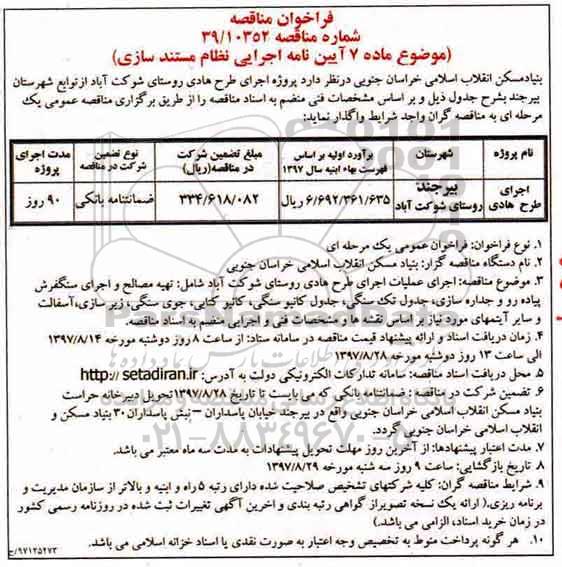 فراخوان مناقصه
شماره مناقصه ۳۹/۱۰۳۵۲
(موضوع ماده ۷ آیین نامه اجرایی نظام مستند سازی)
بنیادمسکن انقلاب اسلامی خراسان جنوبی درنظر دارد پروژه اجرای طرح هادی روستای شوکت آباد ازتوابع شهرستان
بیرجند بشرح جدول ذیل و بر اساس مشخصات فنی منضم به اسناد مناقصه را از طریق برگزاری مناقصه عمومی یک
مرحله ای به مناقصه گران واجد شرایط واگذار نماید:
نام پروژه شهرستان برآورد اولیه بر اساس فهرست بهاء ابنیه سال ۱۳۹۷ مبلغ تضمین شرکت در مناقصه(ریال) نوع تضمین شرکت در مناقصه مدت اجرای پروژه
اجرای طرح هادی بیرجند روستای شوکت آباد ۶/۶۹۲/۳۶۱/۶۳۵ ریال ۳۳۴/۶۱۸/۰۸۲ ضمانتنامه بانکی ۹۰ روز
۱. نوع فراخوان: فراخوان عمومی یک مرحله ای
۲. نام دستگاه مناقصه گزار: بنیاد مسکن انقلاب اسلامی خراسان جنوبی
۳. موضوع مناقصه: اجرای عملیات اجرای طرح هادی روستای شوکت آباد شامل: تهیه مصالح و اجرای سنگفرش
پیاده رو و جداره سازی، جدول تک سنگی، جدول کانیو سنگی، کانیو کتابی، جوی سنگی، زیر سازی، آسفالت
و سایر آیتمهای مورد نیاز بر اساس نقشه ها و مشخصات فنی و اجرایی منضم به اسناد مناقصه.
۴. زمان دریافت اسناد و ارائه پیشنهاد قیمت مناقصه در سامانه ستاد: از ساعت ۸ روز دوشنبه مورخه ۱۳۹۷/۸/۱۴
الی ساعت ۱۳ روز دوشنبه مورخه ۱۳۹۷/۸/۲۸
۵. محل دریافت اسناد مناقصه: سامانه تدارکات الکترونیکی دولت به آدرس: http:// setadiran.ir
۶. تضمین شرکت در مناقصه : ضمانتنامه بانکی که می بایست تا تاریخ ۱۳۹۷/۸/۲۸تحویل دبیرخانه حراست
بنیاد مسکن انقلاب اسلامی خراسان جنوبی واقع در بیرجند خیابان پاسداران – نبش پاسداران ۳۰ بنیاد مسکن و
انقلاب اسلامی خراسان جنوبی گردد.
۷. مدت اعتبار پیشنهادها: از آخرین روز مهلت تحویل پیشنهادات به مدت سه ماه معتبر می باشد.
۸. تاریخ بازگشایی: ساعت ۹ روز سه شنبه مورخه ۱۳۹۷/۸/۲۹
۹. شرایط مناقصه گران: کلیه شرکتهای تشخیص صلاحیت شده دارای رتبه ۵ راه و ابنیه و بالاتر از سازمان مدیریت و
برنامه ریزی.( ارائه یک نسخه تصویراز گواهی رتبه بندی و اخرین آگهی تغییرات ثبت شده در روزنامه رسمی کشور
در زمان خرید اسناد، الزامی می باشد.)
۱۰. هر گونه پرداخت منوط به تخصیص وجه اعتبار به صورت نقدی یا اسناد خزانه اسلامی می باشد.
۹۷۱۲۵۲۷۳/خ
۰۲۱-۸۸۳۴۹۶۷۰-۵